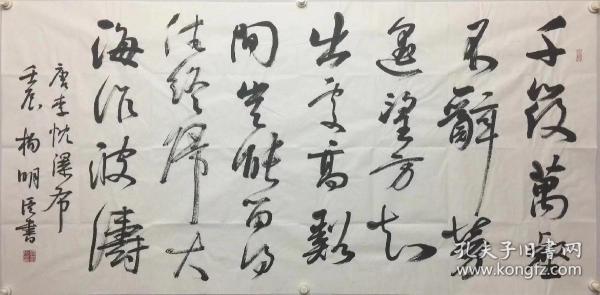 千萬壑
不辭勞
遠望方知
出處高谿
間豈能留得
住終歸大
海作波濤
唐李忱瀑布
壬辰楊明臣書
孔夫子旧书网
www.kongfz.com